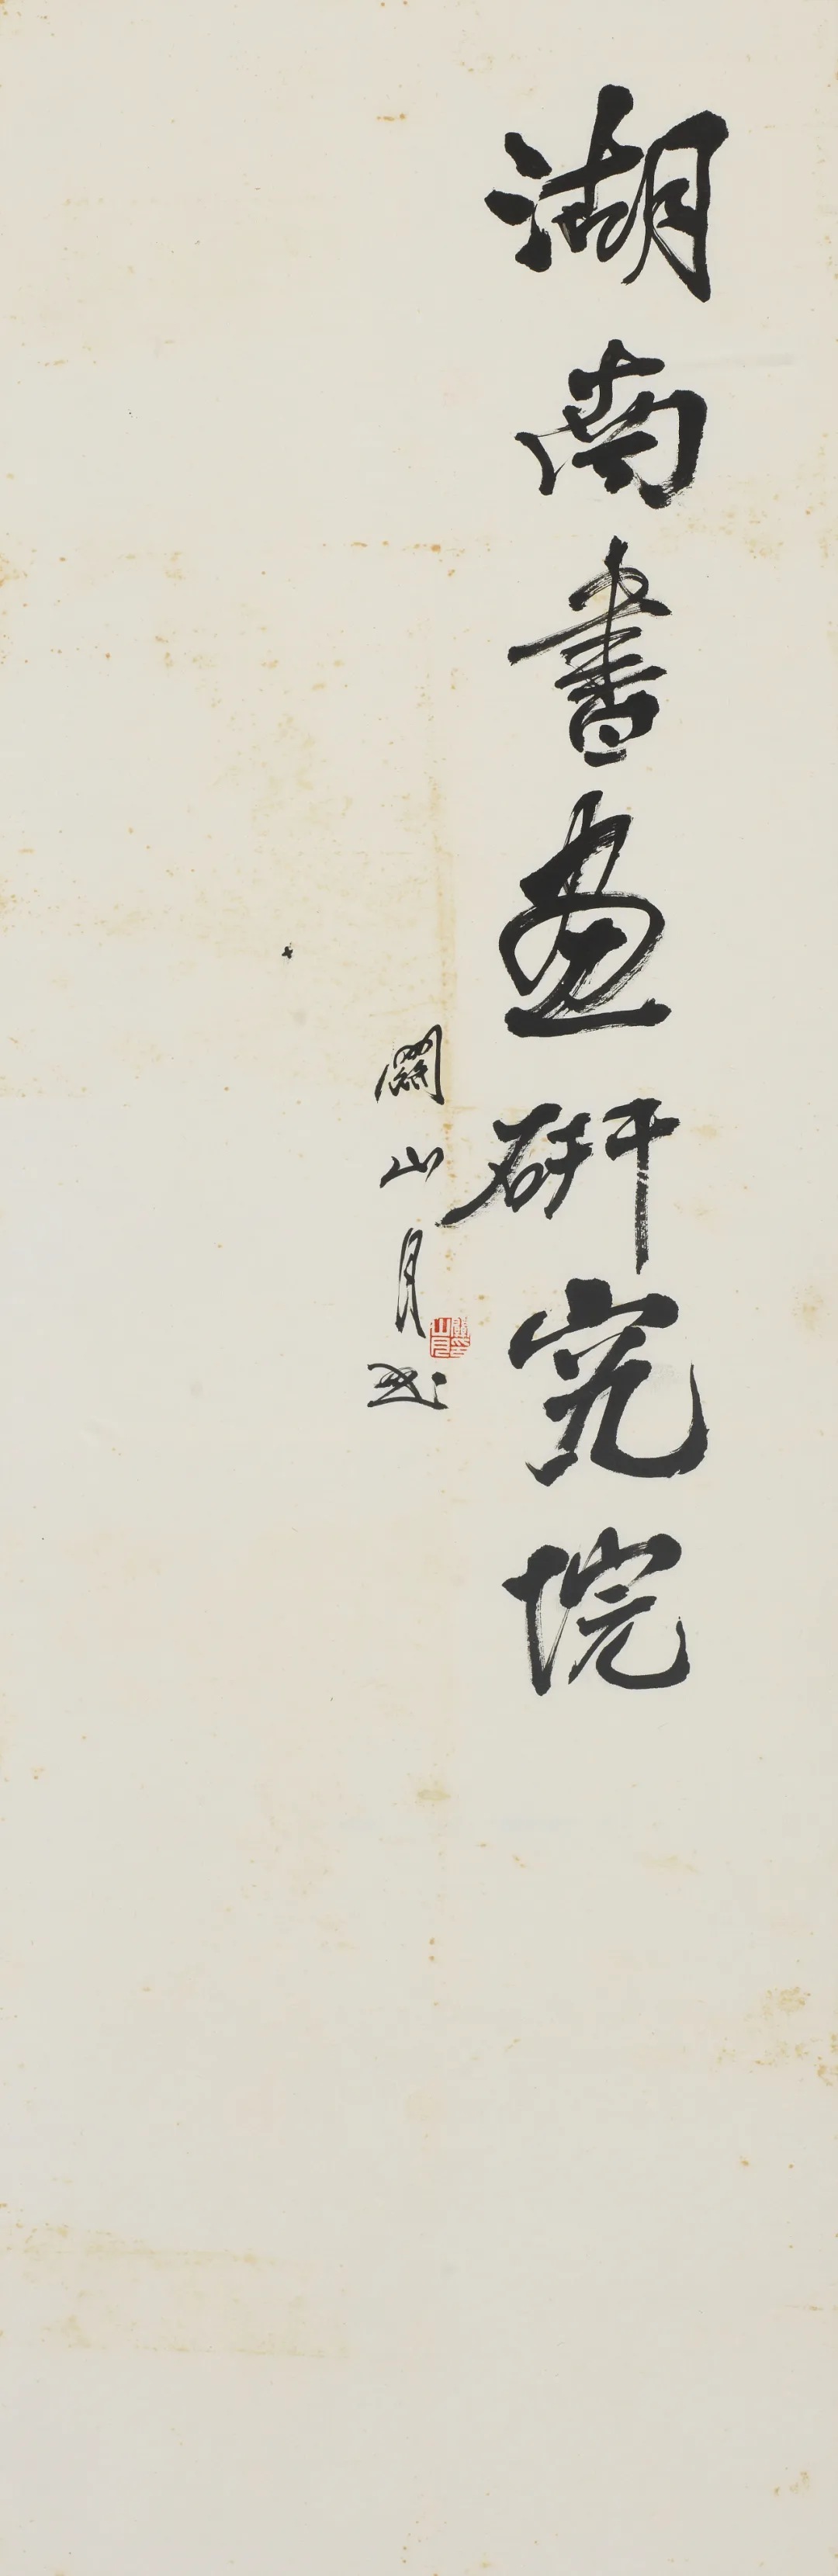 湖南書畫硏究院
關山月书
關山月印